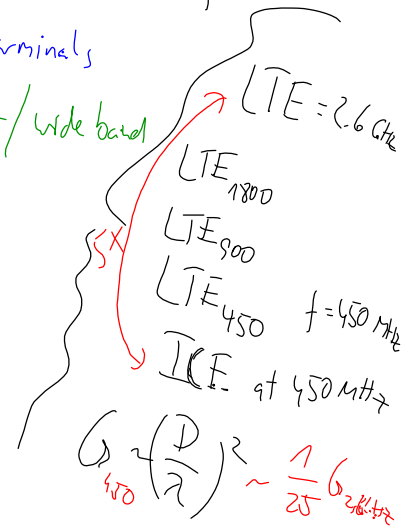 rminals
-/wide band
LTE = 2.6 GHz
LTE1800
LTE900
5X
LTE450 f = 450 MHz
ICE at 450 MHz
G450 ~ (D/λ)² ~ 1/25 G2.6GHz